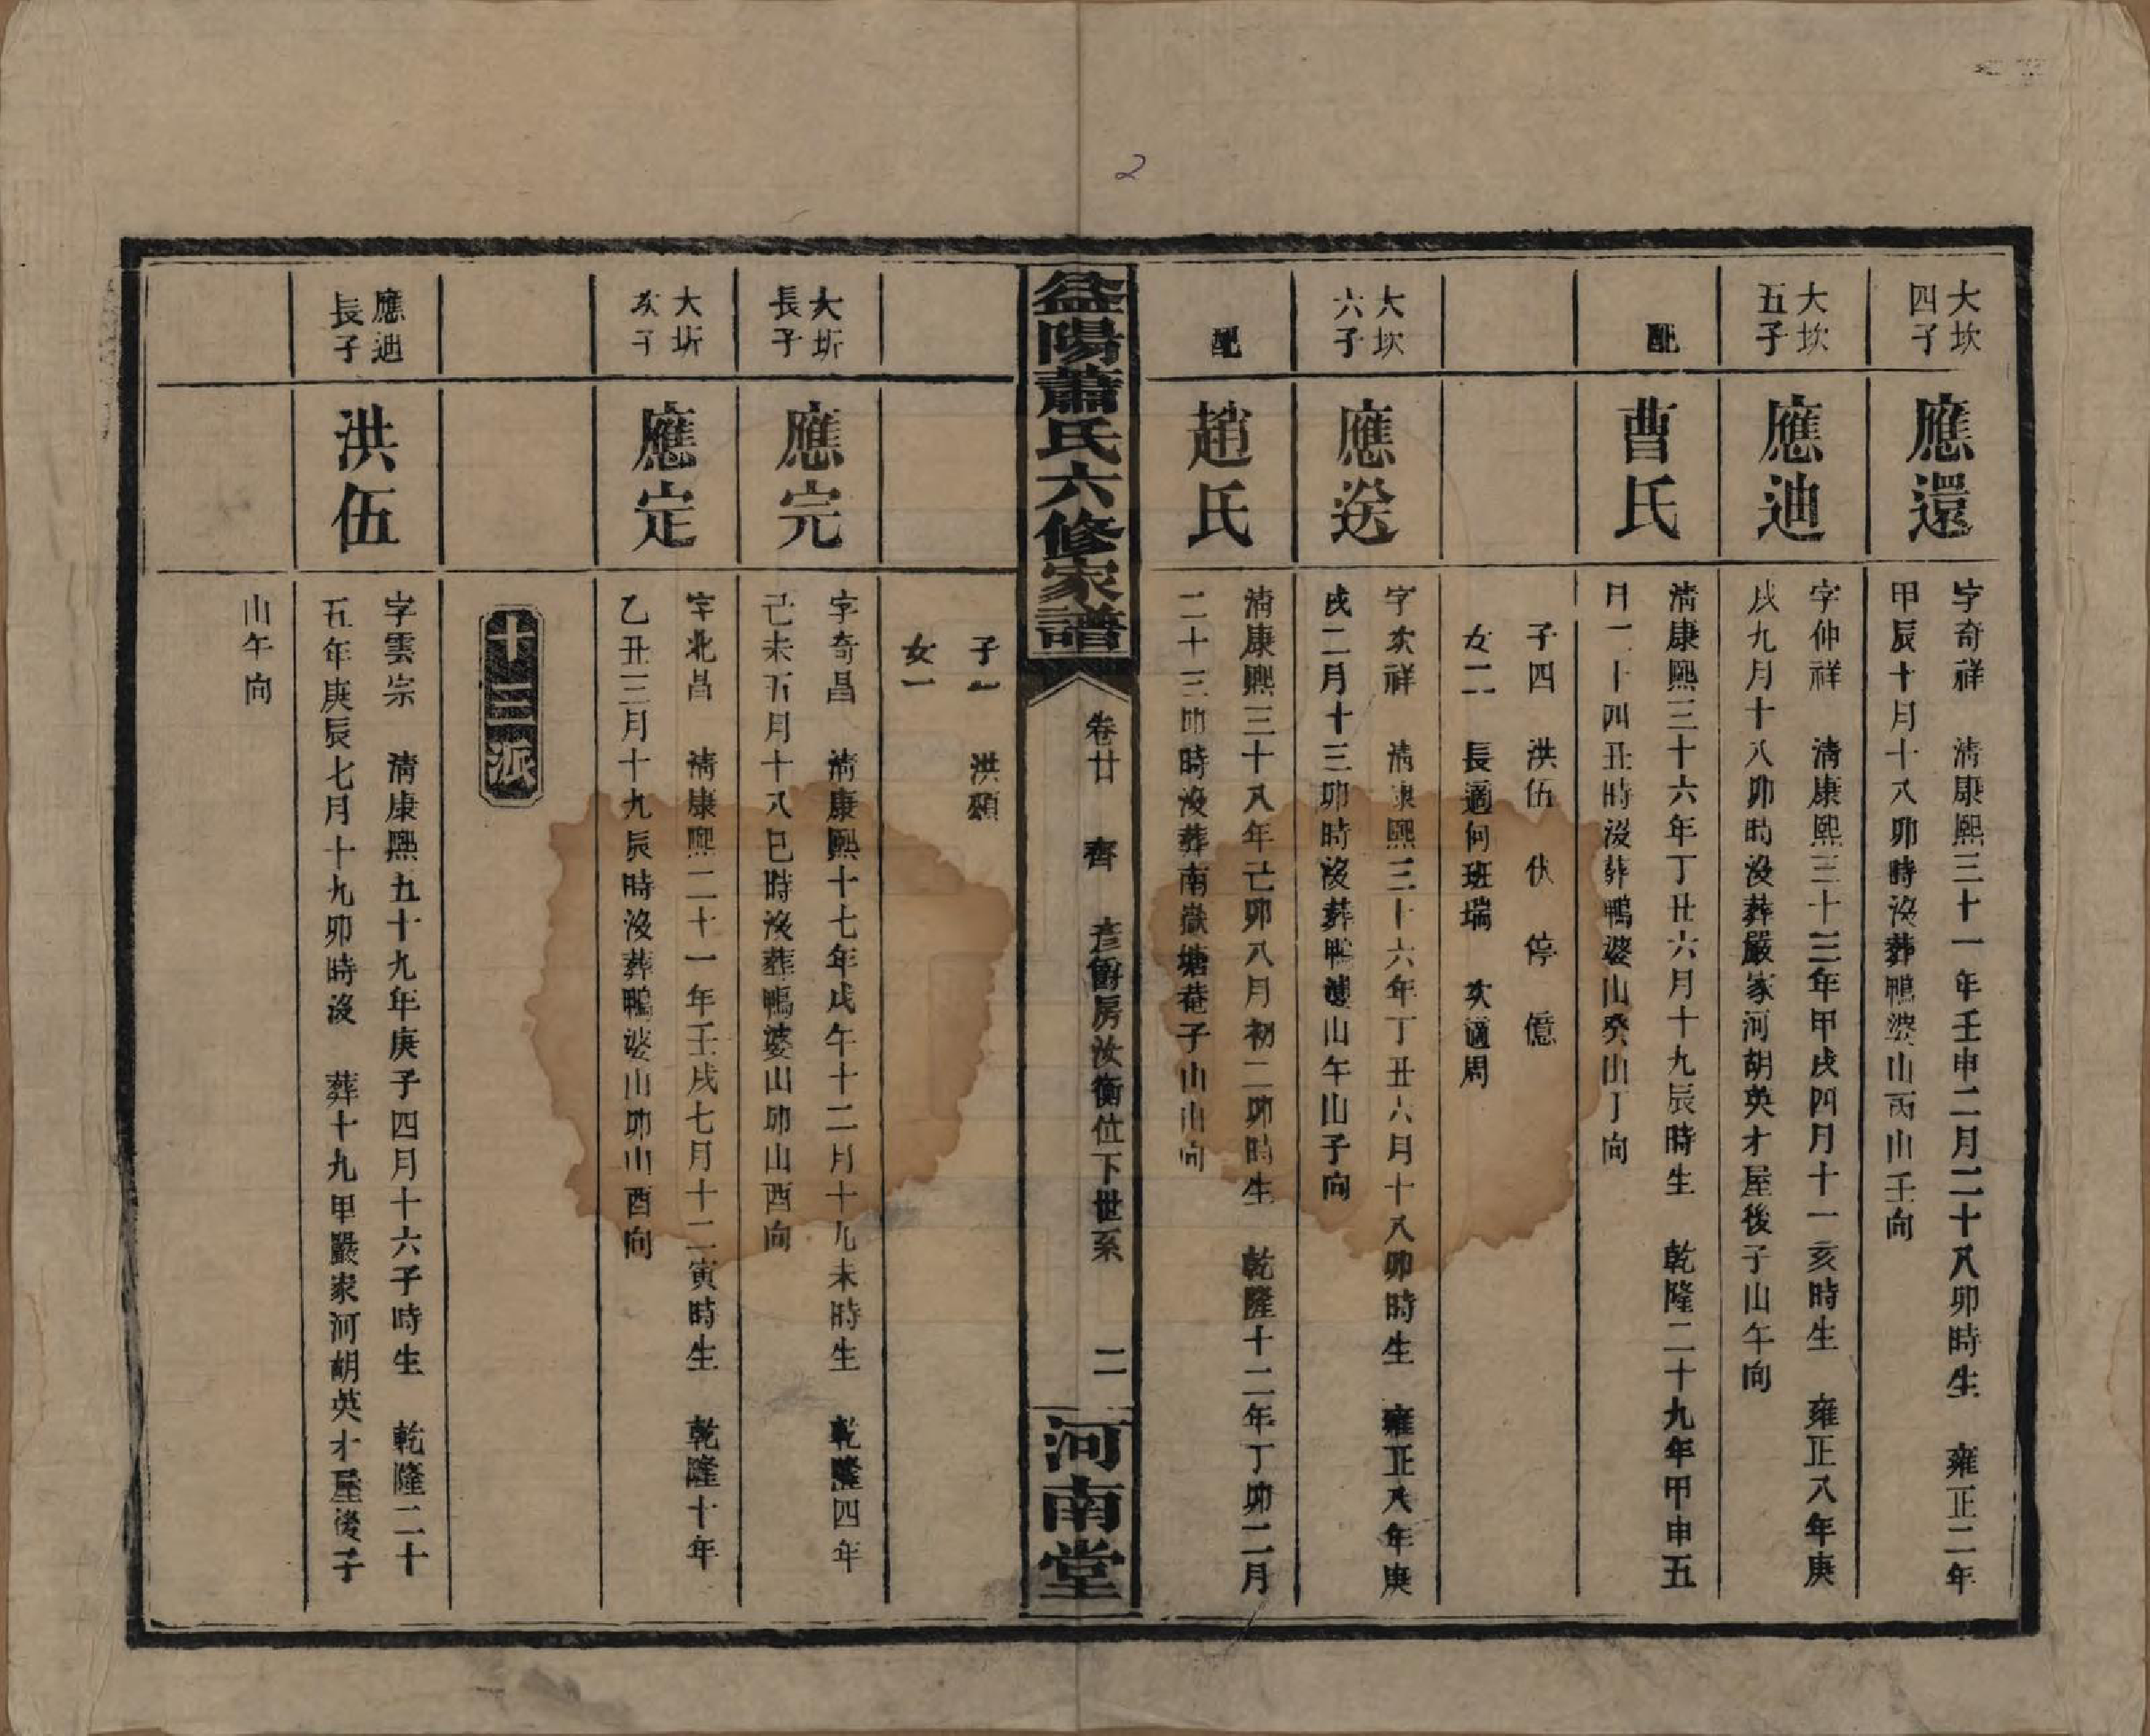 2
大坎
四子
應還
字奇祥　清康熙三十一年壬申二月二十八卯時生　雍正二年
甲辰十月十八卯時沒葬鴨婆山丙山壬向
大坎
五子
應迪
字仲祥　清康熙三十三年甲戌四月十一亥時生　雍正八年庚
戌九月十八卯時沒葬嚴家河胡英才屋後子山午向
配
曹氏
清康熙三十六年丁丑六月十九辰時生　乾隆二十九年甲申五
月二十四丑時沒葬鴨婆山癸山丁向
子四　洪伍　伏　停　億
女二　長適何班瑞　次適周
大坎
六子
應送
字次祥　清康熙三十六年丁丑六月十八卯時生　雍正八年庚
戌二月十三卯時沒葬鴨婆山午山子向
配
趙氏
清康熙三十八年己卯八月初二卯時生　乾隆十二年丁卯二月
二十三卯時沒葬南嶽塘菴子山山向
益陽蕭氏六修家譜
卷廿　齊　彥爵房汝衡位下世系　二
河南堂
子一　洪頟
女一
大圻
長子
應完
字奇昌　清康熙十七年戊午十二月十九未時生　乾隆四年
己未五月十八巳時沒葬鴨婆山卯山酉向
大圻
次子
應定
字北昌　清康熙二十一年壬戌七月十二寅時生　乾隆十年
乙丑三月十九辰時沒葬鴨婆山卯山酉向
十三派
應迪
長子
洪伍
字雲宗　清康熙五十九年庚子四月十六子時生　乾隆二十
五年庚辰七月十九卯時沒　葬十九甲嚴家河胡英才屋後子
山午向